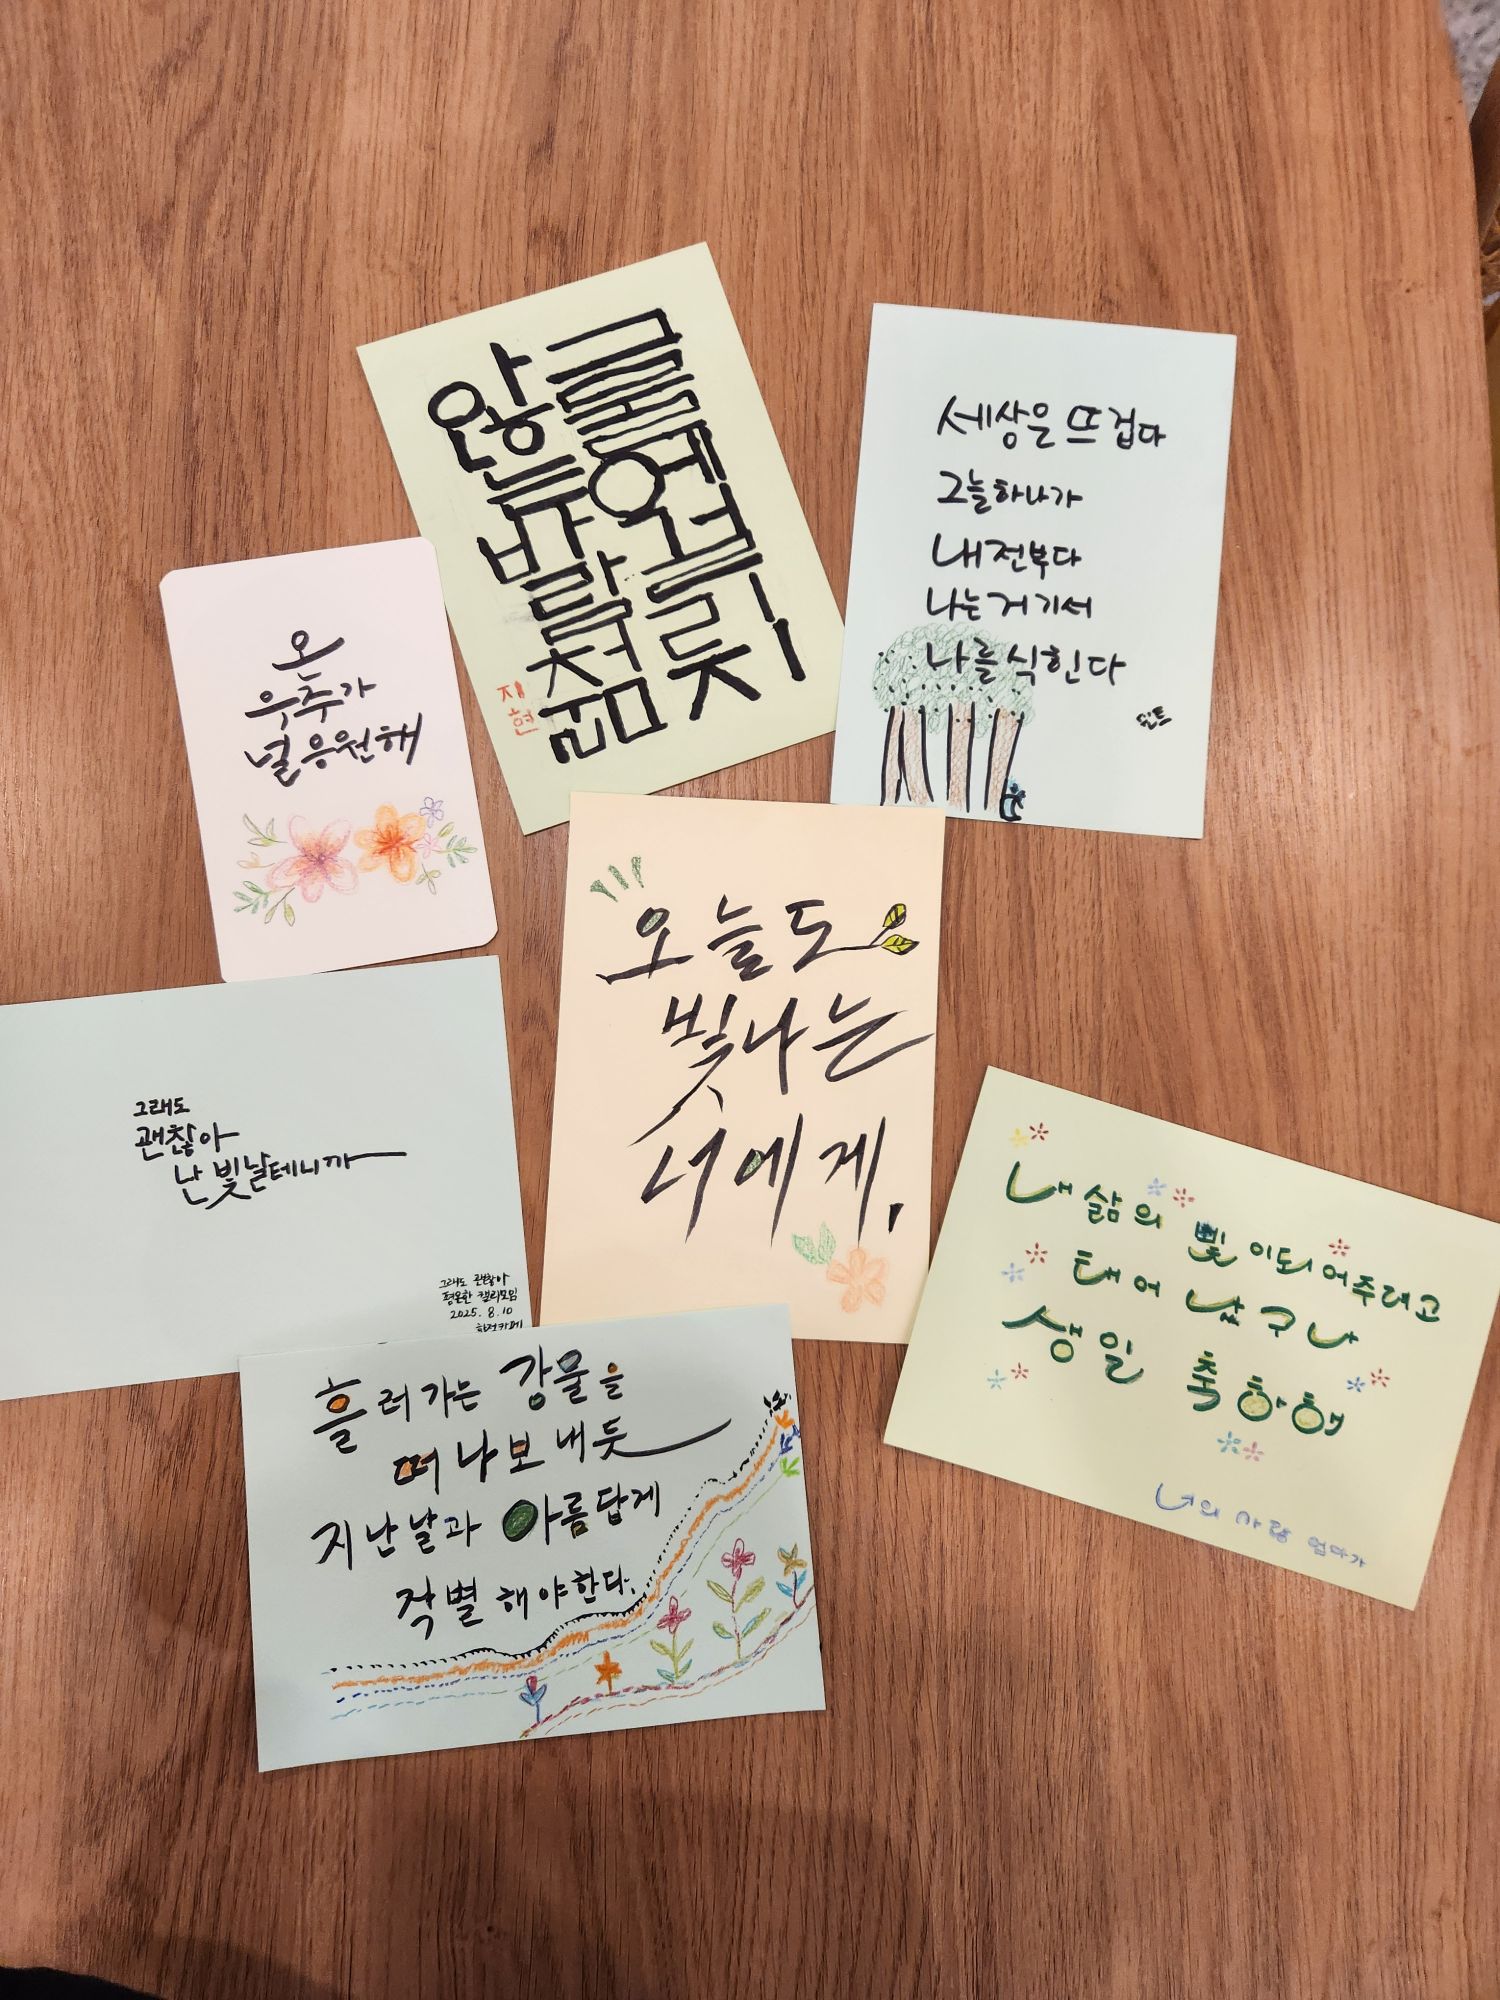 그물에 걸리지
않는 바람처럼
지현
세상은 뜨겁다
그늘 하나가
내 전부다
나는 거기서
나를 식힌다
온
우주가
널 응원해
오늘도
빛나는
너에게.
그래도
괜찮아
난 빛날테니까
그래도 괜찮아
평온한 캘리모임
2025. 8. 10
내 삶의 빛이 되어주려고
태어났구나
생일 축하해
너의 사랑 엄마가
흘러가는 강물을
떠나보내듯
지난날과 아름답게
작별해야한다.